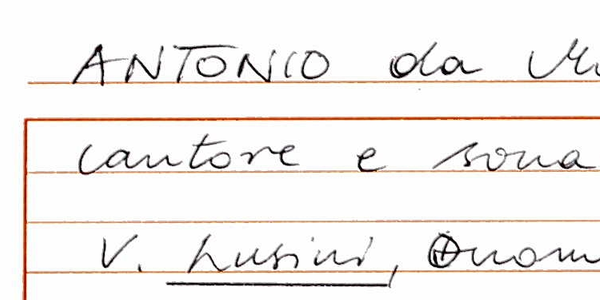 ANTONIO da
cantore e sona
V. Lusini,